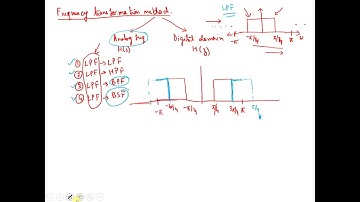 Frequency transformation method.
LPF
Analog freq
H(s)
Digital domain
H(z)
-π -π/4 π/4 π ω
① LPF → LPF
② LPF → HPF
③ LPF → BPF
④ LPF → BSF
-π -3π/4 -π/4 π/4 3π/4 π 5π/4